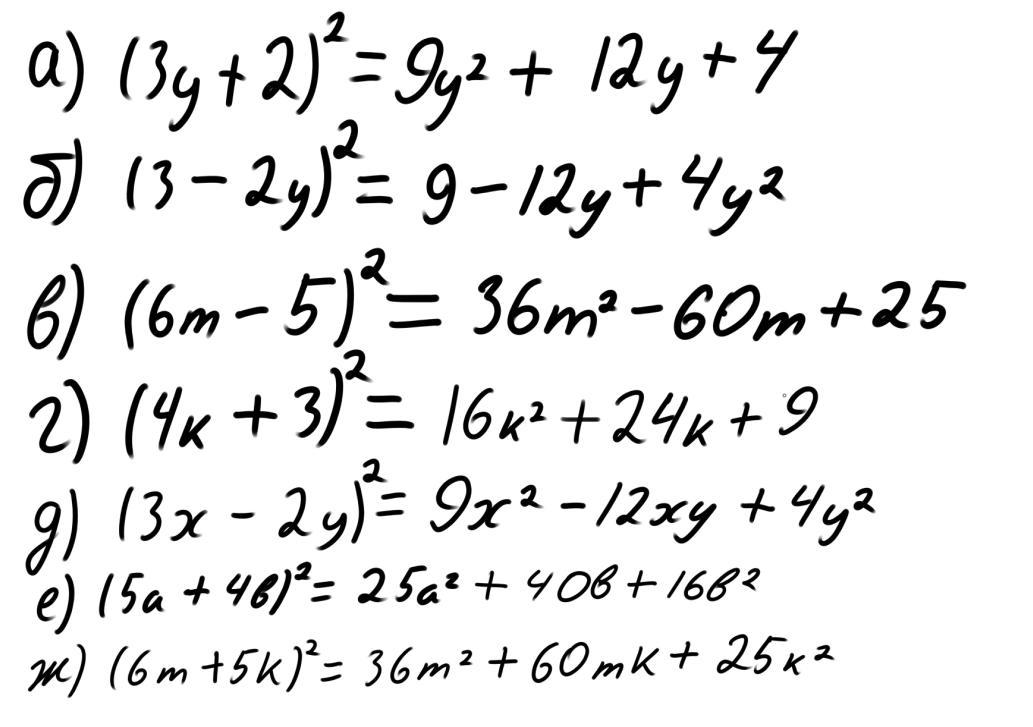 а) (3y+2)² = 9y² + 12y + 4
б) (3 - 2y)² = 9 - 12y + 4y²
в) (6m - 5)² = 36m² - 60m + 25
г) (4к + 3)² = 16к² + 24к + 9
д) (3x - 2y)² = 9x² - 12xy + 4y²
е) (5а + 4в)² = 25а² + 40в + 16в²
ж) (6m + 5к)² = 36m² + 60mк + 25к²